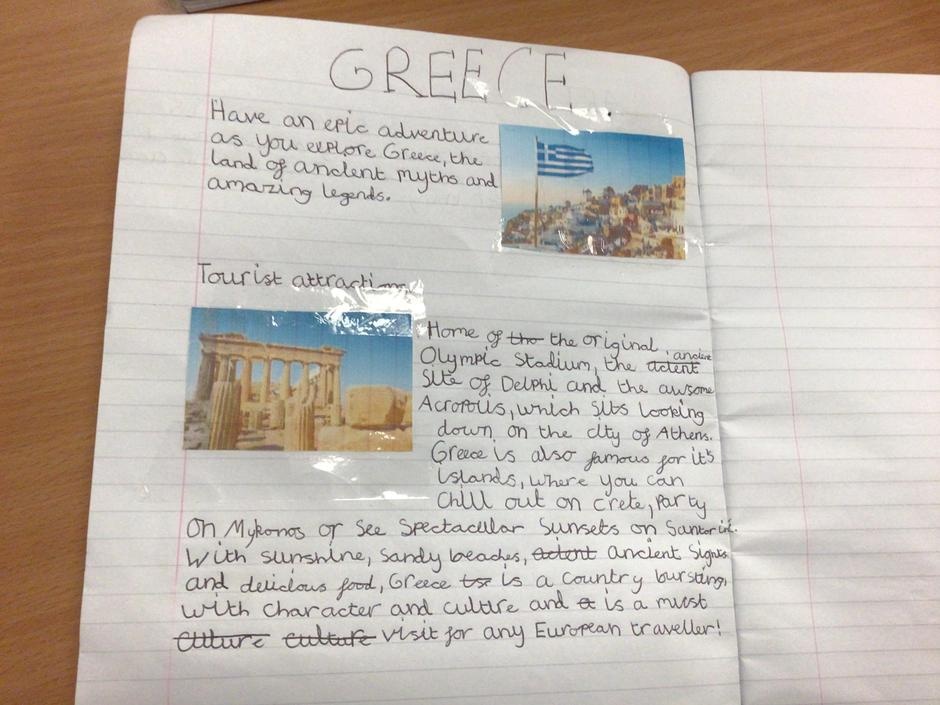 GREECE
Have an epic adventure
as you explore Greece, the
land of ancient myths and
amazing legends.
Tourist attractions
Home of tho the original
Olympic Stadium, the actent ancient
Site of Delphi and the awsome
Acropolis, which sits looking
down on the city of Athens.
Greece is also famous for it's
islands, where you can
chill out on Crete, party
on Mykonos or see spectacular sunsets on Santorini.
With sunshine, sandy beaches, actent ancient signts
and delicious food, Greece is a country bursting
with character and culture and a is a must
culture visit for any European traveller!